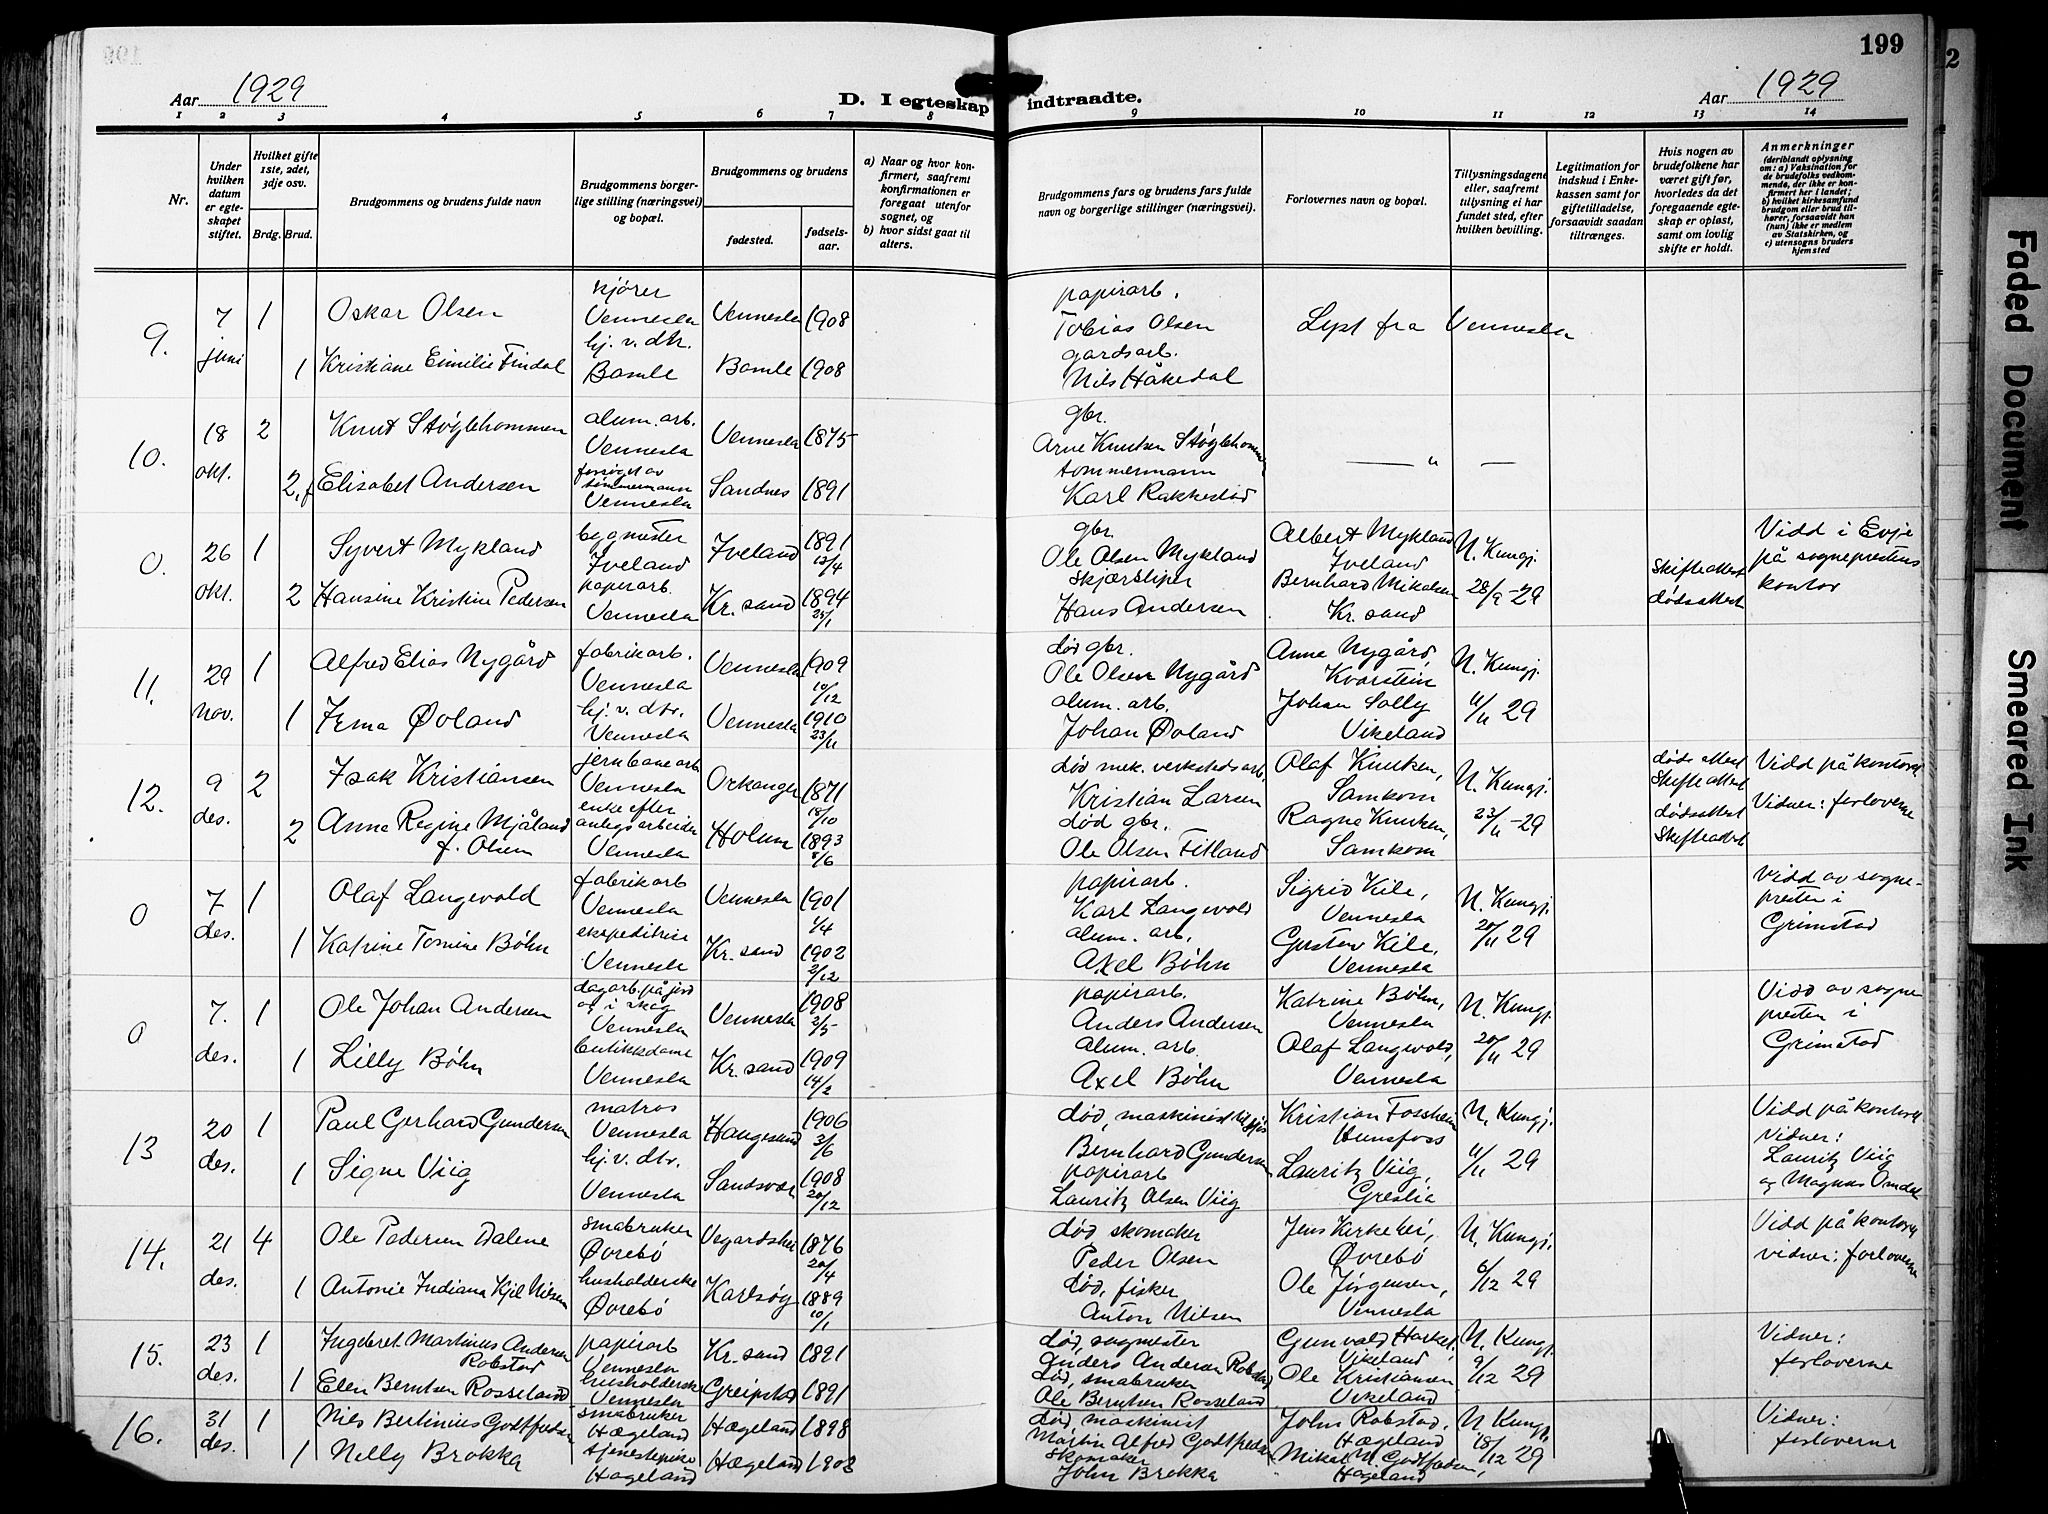 199
Aar 1929
D. I egteskap indtraadte.
Aar 1929
1 2 3 4 5 6 7 8 9 10 11 12 13 14
Nr.
Under hvilken datum er egteskapet stiftet.
Hvilket gifte 1ste, 2det, 3dje osv.
Brdg. Brud.
Brudgommens og brudens fulde navn
Brudgommens borgerlige stilling (næringsvei) og bopæl.
Brudgommens og brudens
fødested.
fødselsaar.
a) Naar og hvor konfirmert, saafremt konfirmationen er foregaat utenfor sognet, og
b) hvor sidst gaat til alters.
Brudgommens fars og brudens fars fulde navn og borgerlige stillinger (næringsvei).
Forlovernes navn og bopæl.
Tillysningsdagene eller, saafremt tillysning ei har fundet sted, efter hvilken bevilling.
Legitimation for indskud i Enkekassen samt for giftetilladelse, forsaavidt saadan tiltrænges.
Hvis nogen av brudefolkene har været gift før, hvorledes da det foregaaende egteskap er opløst, samt om lovlig skifte er holdt.
Anmerkninger
(deriblandt oplysning om: a) Vaksination for de brudefolks vedkommende, der ikke er konfirmert her i landet;
b) hvilket kirkesamfund brudgom eller brud tilhører, forsaavidt han (hun) ikke er medlem av Statskirken, og
c) utensogns bruders hjemsted
9. 7 juni 1 Oskar Olsen kjører Vennesla Vennesla 1908 papirarb. Tobias Olsen Lyst fra Vennesla
1 Kristiane Emilie Findal hj. v. dtr. Bamle Bamle 1908 gardsarb. Nils Håkedal
10. 18 okt. 2 Knut Støylehommen alum. arb. Vennesla Vennesla 1875 gbr. Arne Knutsen Støylehommen — " —
2, f Elisabet Andersen tømmermann Vennesla Sandnes 1891 tømmermann Karl Rakkestad
0. 26 okt. 1 Syvert Mykland bygmester Iveland Iveland 1891 12/4 gbr. Ole Olsen Mykland Albert Mykland Iveland N. Kungj. 28/9-29 Vidd i Evje på sogneprestens kontor
2 Hansine Kristine Pedersen papirarb. Vennesla Kr. sand 1894 25/1 skjærsliper Hans Andersen Bernhard Mikalsen Kr. sand skifteattest dødsattest
11. 29 nov. 1 Alfred Elias Nygård fabrikarb. Vennesla Vennesla 1909 10/12 død gbr. Ole Olsen Nygård Anne Nygård, Kvarstein N. Kungj. 11/11 29
1 Irma Øvland hj. v. dtr. Vennesla Vennesla 1910 23/11 alum. arb. Johan Øvland Johan Solly Vikeland
12. 9 des. 2 Isak Kristiansen jernbanearb Vennesla Orkanger 1871 18/10 død mek. verkstedsarb. Kristian Larsen Olaf Knutsen, Samkom N. Kungj. 23/11-29 dødsattest skifteattest Vidd på kontoret Vidner: forloverne
2 Anne Regine Mjåland f. Olsen enke efter anlegsarbeider Vennesla Holum 1893 8/6 død gbr. Ole Olsen Fitland Ragna Knutsen, Samkom dødsattest skifteattest
0 7 des. 1 Olaf Langevold fabrikarb Vennesla Vennesla 1901 1/4 papirarb. Karl Langevold Sigrid Kile, Vennesla N. Kungj. 20/11 29 Vidd av sognepresten i Grimstad
1 Katrine Tomine Bøhn ekspeditrise Vennesla Kr. sand 1902 2/12 alum. arb. Axel Bøhn Gustav Kile, Vennesla
0 7. des. 1 Ole Johan Andersen dagarb. på jord og i skog Vennesla Vennesla 1908 2/5 papirarb. Anders Andersen Katrine Bøhn, Vennesla N. Kungj. 20/11 29 Vidd av sognepresten i Grimstad
1 Lilly Bøhn butikkdame Vennesla Kr. sand 1909 14/2 alum. arb. Axel Bøhn Olaf Langevold, Vennesla
13 20 des. 1 Paul Gerhard Gundersen matros Vennesla Haugesund 1906 3/6 død, maskinist til sjøs Bernhard Gundersen Kristian Fossheim Hunsfoss N. Kungj. 11/11 29 Vidd på kontoret Vidner: Lauritz Viig og Magnus Omdal
1 Signe Viig hj. v. dtr. Vennesla Sandsvær 1908 20/12 papirarb Lauritz Olsen Viig Lauritz Viig, Greslia
14. 21 des. 4 Ole Pedersen Dalene småbruker Øvrebø Vegårdshei 1876 20/4 død skomaker Peder Olsen Jens Kirkebei, Øvrebø N. Kungj. 6/12 29 Vidd på kontoret vidner: forloverne
1 Antonie Indiana Kjil Nilsen husholderske Øvrebø Karlsøy 1889 10/1 død, fisker Anton Nilsen Ole Jörgensen, Vennesla
15. 23 des. 1 Ingebret Martinius Andersen Robstad papirarb Vennesla Kr. sand 1891 død, sagmester Anders Andersen Robstad Gunvald Harket, Vikeland, N. Kungj. 9/12 29 Vidner: forloverne
1 Elen Berntsen Rosseland husholderske Vennesla Greipstad 1891 død, småbruker Ole Berntsen Rosseland Ole Kristiansen Vikeland
16. 31 des. 1 Nils Bertinius Godtfredsen småbruker Hægeland Hægeland 1898 død, maskinist Martin Alfred Godtfredsen John Robstad, Hægeland N. Kungj. 18/12 29 Vidner: forloverne
1 Nelly Brokka tjenestepike Hægeland Hægeland 1903 skomaker John Brokka Mikal N. Godtfredsen, Hægeland
2
Faded Document
Smeared Ink